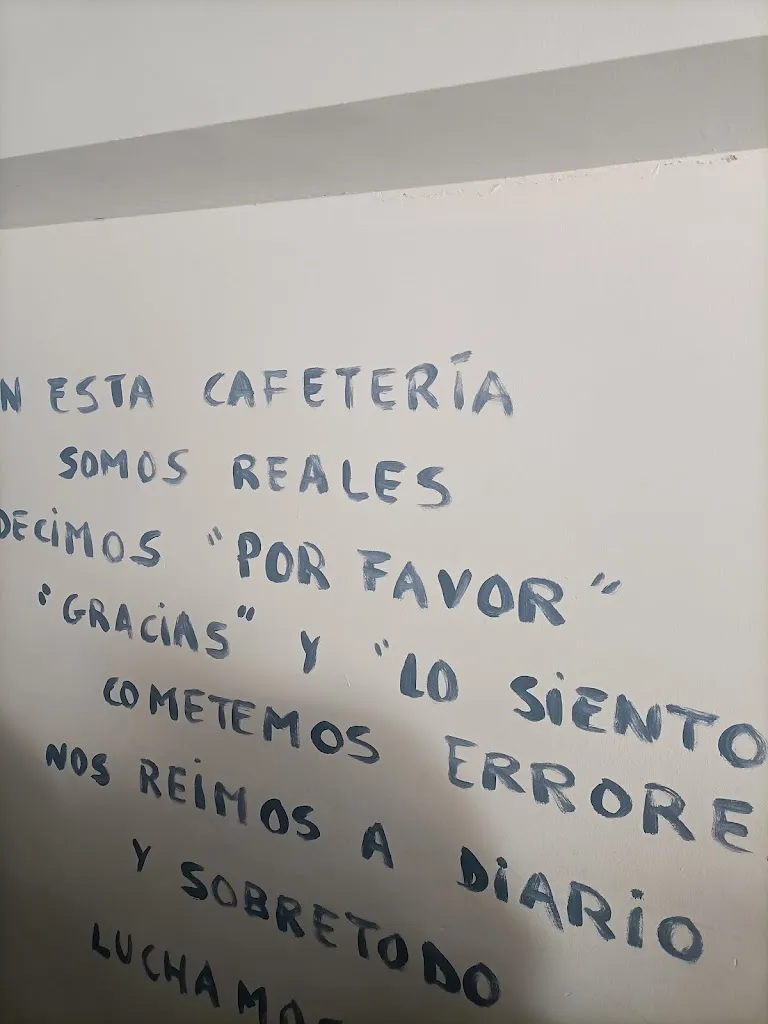 N ESTA CAFETERÍA
SOMOS REALES
DECIMOS "POR FAVOR"
"GRACIAS" Y "LO SIENTO
COMETEMOS ERRORE
NOS REIMOS A DIARIO
Y SOBRETODO
LUCHAMO